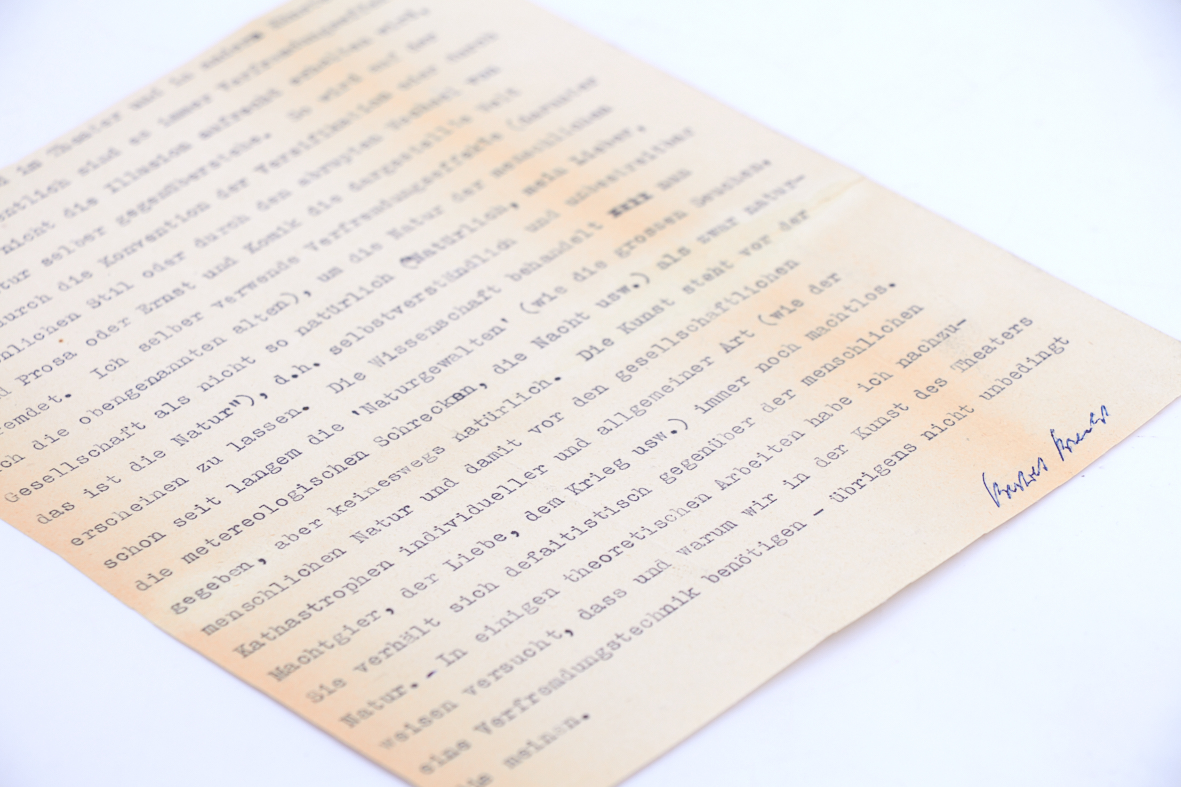 im Theater und in andern
sind es immer Verfremdungseffekte
nicht die Illusion aufrecht erhalten wird,
selber gegenüberstehe. So wird auf der
durch die Konvention der Versifikation oder durch
nlichen Stil oder durch den abrupten Wechsel von
Prosa oder Ernst und Komik die dargestellte Welt
remdet. Ich selber verwende Verfremdungseffekte (darunter
ch die obengenannten alten), um die Natur der menschlichen
Gesellschaft als nicht so natürlich ("Natürlich, mein Lieber,
das ist die Natur"), d.h. selbstverständlich und unbestreitbar
erscheinen zu lassen. Die Wissenschaft behandelt xxxx nun
schon seit langem die 'Naturgewalten' (wie die grossen Seuchen,
die metereologischen Schrecken, die Nacht usw.) als zwar natur-
gegeben, aber keineswegs natürlich. Die Kunst steht vor der
menschlichen Natur und damit vor den gesellschaftlichen
Kathastrophen individueller und allgemeiner Art (wie der
Machtgier, der Liebe, dem Krieg usw.) immer noch machtlos.
Sie verhält sich defaitistisch gegenüber der menschlichen
Natur. - In einigen theoretischen Arbeiten habe ich nachzu-
weisen versucht, dass und warum wir in der Kunst des Theaters
eine Verfremdungstechnik benötigen - übrigens nicht unbedingt
die meinen.
Bertolt Brecht